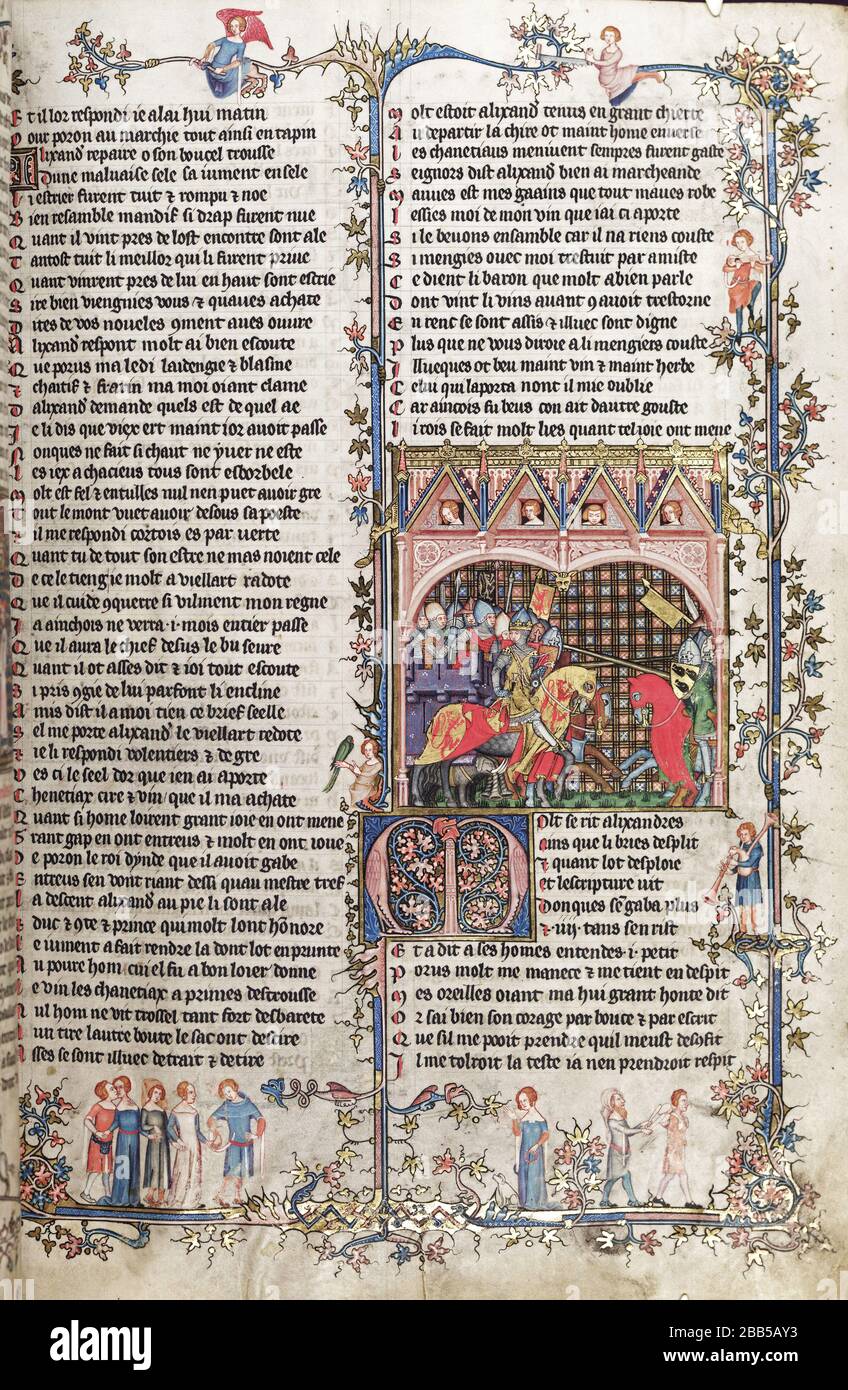 Et il lor respondi ie alai hui matin
Pour poron au marchie tout ainsi en tapin
Alixand repaire o son boucel trousse
Dune maluaise sele sa iument en sele
Li estrier furent tuit & rompu & noe
Bien resamble mandis si drap furent nue
Quant il vint pres de lost encontre sont ale
Tantost tuit li meillor qui li furent priue
Quant vinrent pres de lui en haut sont escrie
Sire bien viengnies vous & quaues achate
Dites de vos noueles 9ment aues ouure
Alixand respont molt ai bien escoute
Que porus ma ledi laidengie & blasme
& chaitif & frarin ma moi oiant clame
Dalixand demande quels est de quel ae
Je li dis que viex ert maint ior auoit passe
Nonques ne fait si chaut ne yuer ne este
Les iex a chacieus tous sont esborbele
Molt est fel & entulles nul nen puet auoir gre
Tout le mont vuet auoir desous sa poeste
& il me respondi cortois es par verte
Quant tu de tout son estre ne mas noient cele
De ce le tieng ie molt a viellart radote
Que il cuide 9querre si vilment mon regne
Ja ainchois ne verra .i. mois entier passe
Que il aura le chief desus le bu seure
Quant il ot asses dit & ioi tout escoute
Si pris 9gie de lui parfont li encline
Amis dist il a moi tien ce brief seelle
Sel me porte alixand le viellart redote
& ie li respondi volentiers & de gre
Ves ci le seel dor que ien ai aporte
Chenetiax cire & vin que il ma achate
Quant si home loirent grant ioie en ont mene
Grant gap en ont entreus & molt en ont ioue
De poron le roi dynde que il auoit gabe
Entreus sen vont riant dessi quau mestre tref
La descent alixand au pie li sont ale
Duc & 9te & prince qui molt lont honnore
Le iument a fait rendre la dont lot enprunte
Au poure hom cui el fu a bon loier donne
Le vin les chanetiax a primes destrousse
Nul hom ne vit trossel tant fort desbarete
Lun tire lautre boute le sac ont descire
Asses se sont illuec detrait & detire
Molt estoit alixand tenus en grant chierte
Au departir la chire ot maint home enuerse
Les chanetiaus menuient sempres furent gaste
Seignors dist alixand bien ai marcheande
Mauues est mes gaains que tout maues robe
Lessies moi de mon vin que iai ci aporte
Si le beuons ensamble car il na riens couste
Si mengies ouec moi trestuit par amiste
Ce dient li baron que molt a bien parle
Dont vint li vins auant 9 auoit trestorne
En renc se sont assis & illuec sont digne
Plus que ne vous diroie a li mengiers couste
Jllueques ot beu maint vin & maint herbe
Celui qui laporta nont il mie oublie
Car aincois fu beus con ait dautre gouste
Li rois se fait molt lies quant tel ioie ont mene
Molt se rit alixandres
ains que li bries desplit
& quant lot desploie
et lescripture vit
Donques sen gaba plus
& .iiii. tans sen rist
Et a dit a ses homes entendes .i. petit
Porus molt me manece & me tient en despit
Mes oreilles oiant ma hui grant honte dit
Or sai bien son corage par bouce & par escrit
Que sil me pooit prendre quil meust desofit
Jl me tolroit la teste ia nen prendroit respit
alamy
Image ID: 2BB5AY3
www.alamy.com